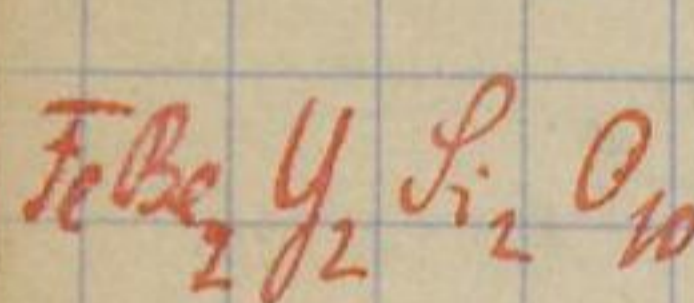 FeBe₂ Y₂ Si₂ O₁₀